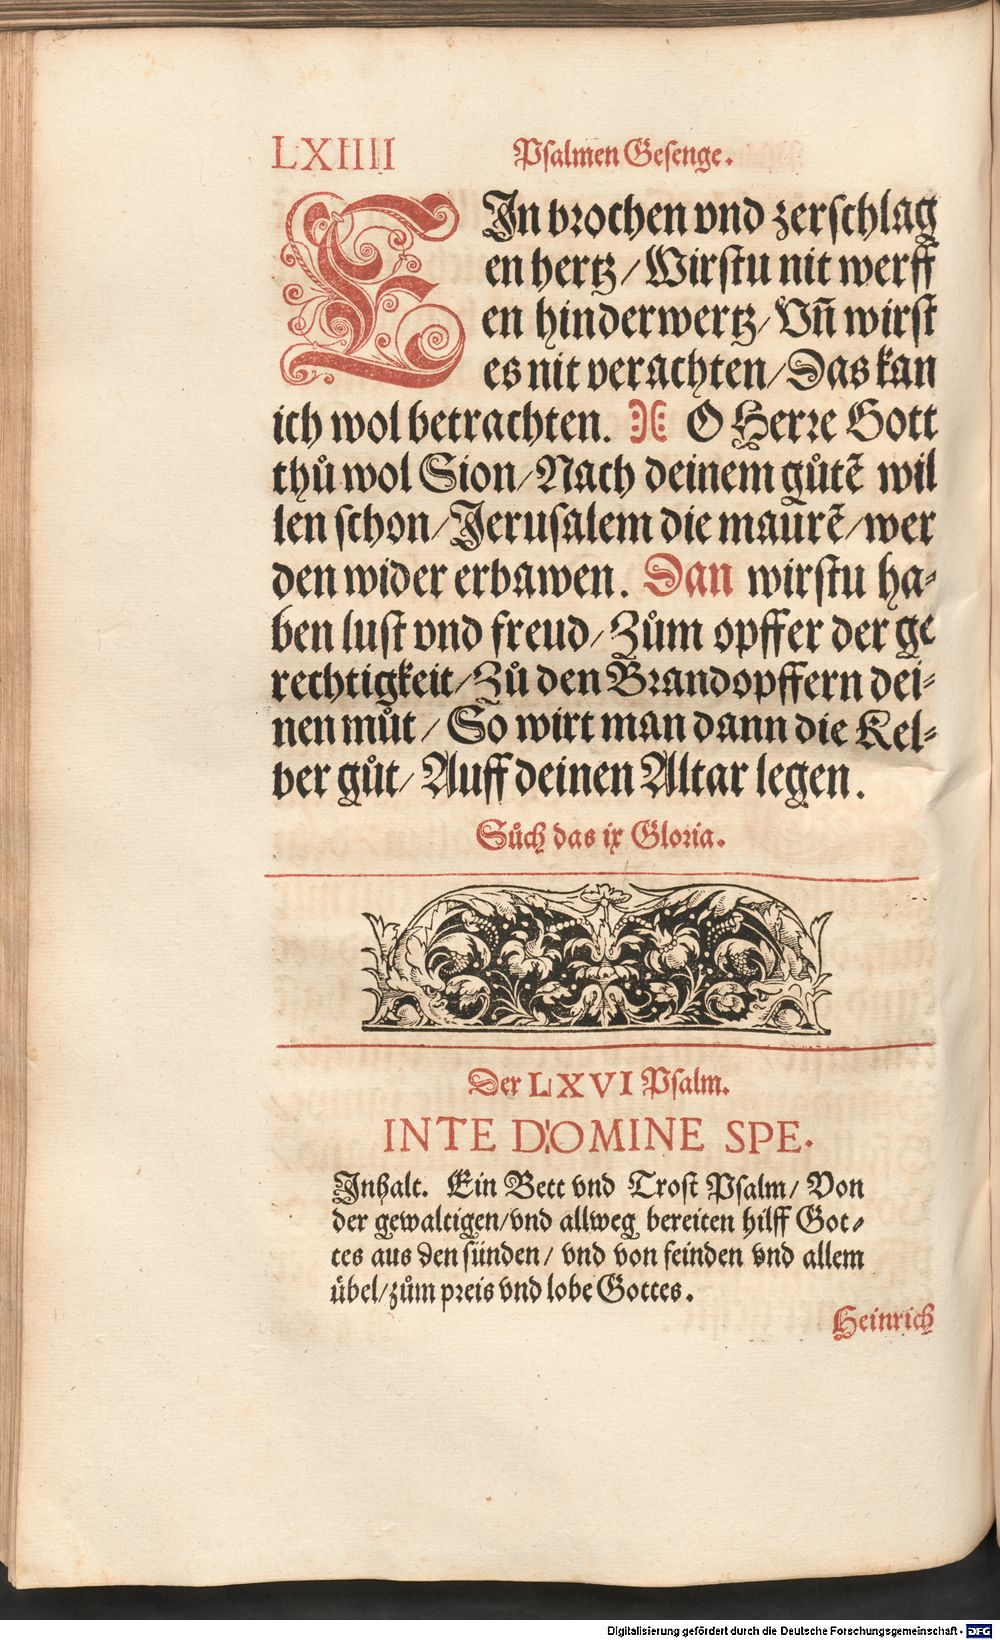 LXIIII Psalmen Gesenge.
EIn brochen vnd zerschlag
en hertz/Wirstu nit werff
en hinderwertz/Vñ wirst
es nit verachten/Das kan
ich wol betrachten. O Herre Gott
thů wol Sion/Nach deinem gůtẽ wil
len schon/Jerusalem die maurẽ/wer
den wider erbawen. Dan wirstu ha⸗
ben lust vnd freud/Zům opffer der ge
rechtigkeit/Zů den Brandopffern dei⸗
nen můt/So wirt man dann die Kel⸗
ber gůt/Auff deinen Altar legen.
Sůch das ix Gloria.
Der LXVI Psalm.
INTE DOMINE SPE.
Inhalt. Ein Bett vnd Trost Psalm/ Von
der gewaltigen/vnd allweg bereiten hilff Got⸗
tes aus den sünden/ vnd von feinden vnd allem
übel/zům preis vnd lobe Gottes.
Heinrich
Digitalisierung gefördert durch die Deutsche Forschungsgemeinschaft - DFG